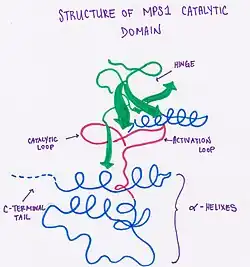 STRUCTURE OF MPS1 CATALYTIC
DOMAIN
HINGE
CATALYTIC
LOOP
ACTIVATION
LOOP
C-TERMINAL
TAIL
α-HELIXES